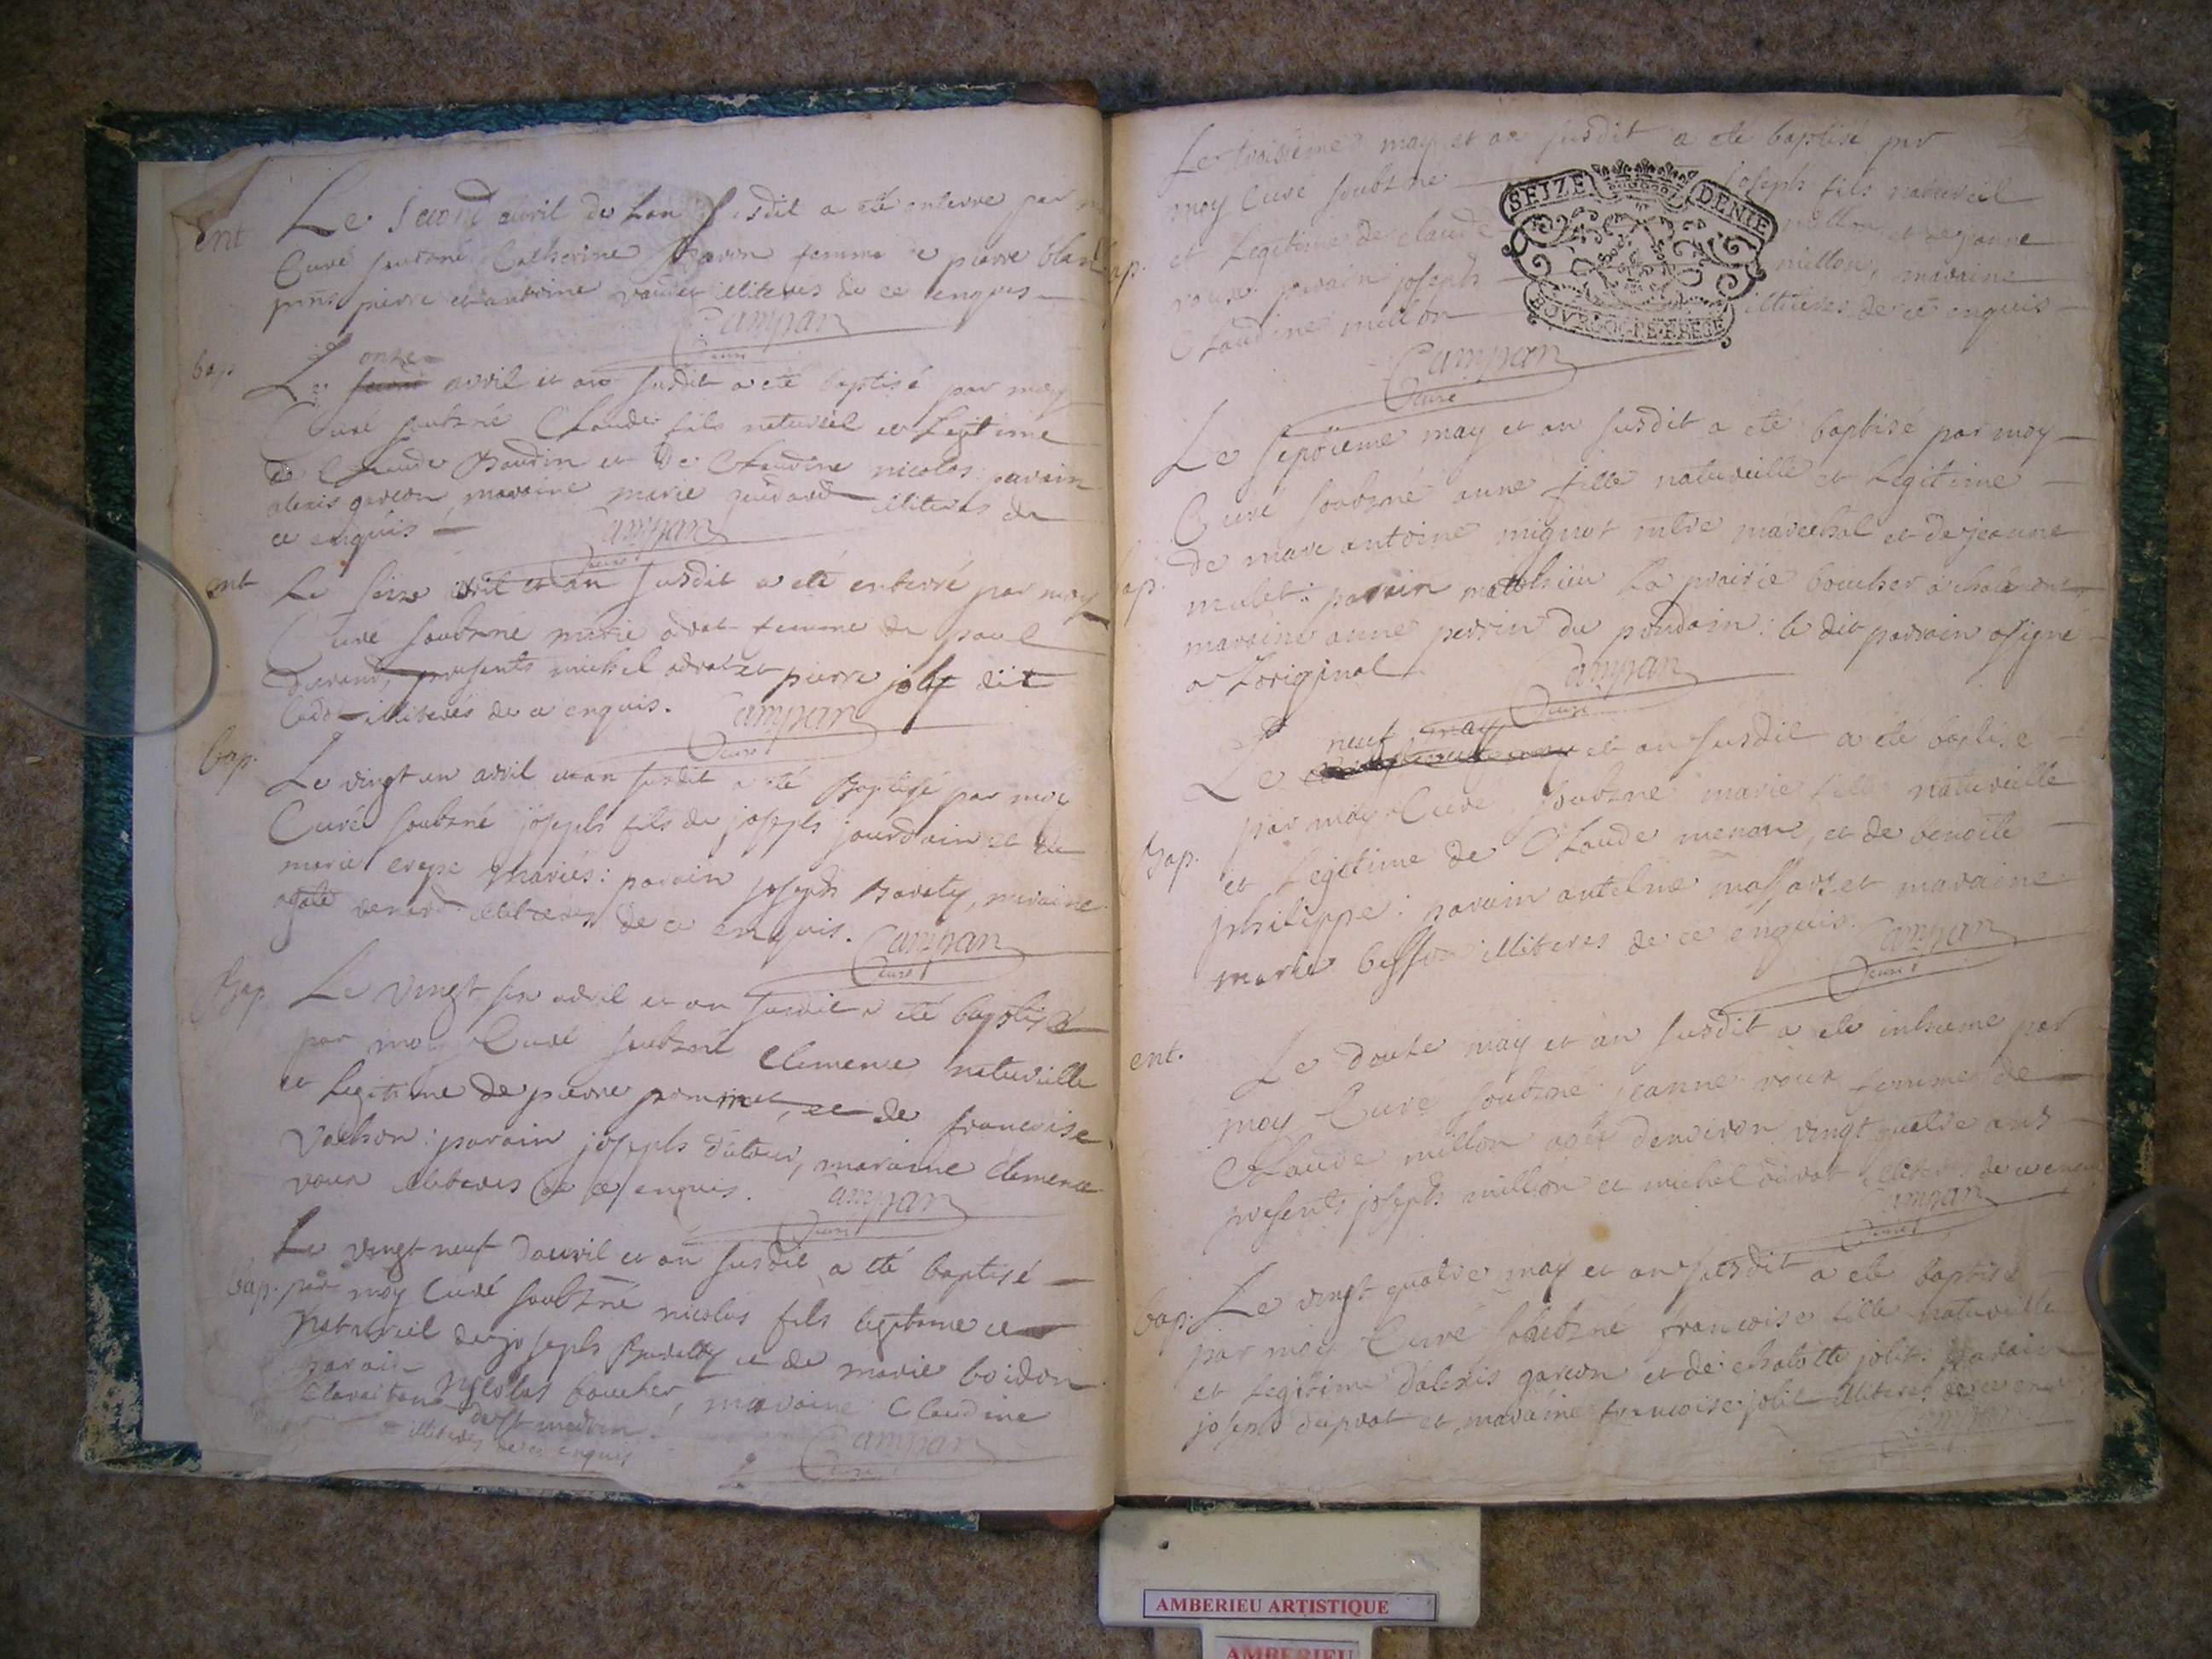 ent
Le second avril de Lan susdit a été enterré par
Curé soubzné Catherine femme de pierre
pierre et antoine illiteres de ce enquis
Campan
Curé
bap
onze
Le avril et an susdit a eté baptisé par moy
Curé soubzné Claude fils naturéel et Legitime
de Claude Baudin et de Claudine nicolas parain
alexis garcon, maraine marie illiteres de
ce enquis
Campan
Curé
ent
Le seize avril et an susdit a eté enterré par moy
Curé soubzné marie adrat femme de paul
durand, presents michel adrat et pierre joly dit
illiteres de ce enquis. Campan
Curé
bap.
Le vingt un avril et an susdit a été Baptisé par moy
Curé soubzné joseph fils de joseph jourdain et de
marie mariés: parain joseph Barety, maraine
agate illiteres de ce enquis. Campan
Curé
Bap.
Le vingt six avril et an susdit a eté baptisé
par moy Curé soubzné Clemence naturéelle
et Legitime de pierre et de francoise
Vachon: parain joseph dutour, maraine Clemence
roux illiteres de ce enquis. Campan
Curé
Le vingt neuf d'auvril et an susdit a été baptisé
bap. par moy Curé soubzné nicolas fils legitime et
naturéel de joseph et de marie boidon
parain nycolas boucher, maraine Claudine
illiteres de ce enquis
Campan
Curé
Le troisieme may et an susdit a eté baptisé par
moy Curé soubzné joseph fils naturéel
bap. et Legitime de claude millon et de janne
roux: parain joseph millon, maraine
Claudine millon illiteres de ce enquis
SEIZE DENIE
BOVRGOGNE BRESE
Campan
Curé
Le septieme may et an susdit a eté baptisé par moy
Curé soubzné anne fille naturéelle et Legitime
de marc antoine mignot mtre marechal et de jeanne
bap. mulet: parain matthieu La prairie boucher a
maraine anne perrin du pondain: le dit parrain a signé
a L'original Campan
Curé
neuf may
Le et an susdit a eté baptisé
par moy Curé soubzné marie fille naturéelle
Bap. et Legitime de Claude et de benoite
philippe: parain antelme et maraine
marie besson illiteres de ce enquis. Campan
Curé
ent.
Le douze may et an susdit a eté inhumé par
moy Curé soubzné jeanne roux femme de
Claude millon agée denviron vingt quatre ans
presents joseph millon et michel adrat illiteres de ce enquis
Campan
Curé
bap. Le vingt quatre may et an susdit a eté baptisé
par moy Curé soubzné francoise fille naturéelle
et Legitime d'alexis garcon et de chalotte jolit: parain
joseph duprat et maraine francoise jolit illiteres de ce enquis
AMBERIEU ARTISTIQUE
AMBERIEU